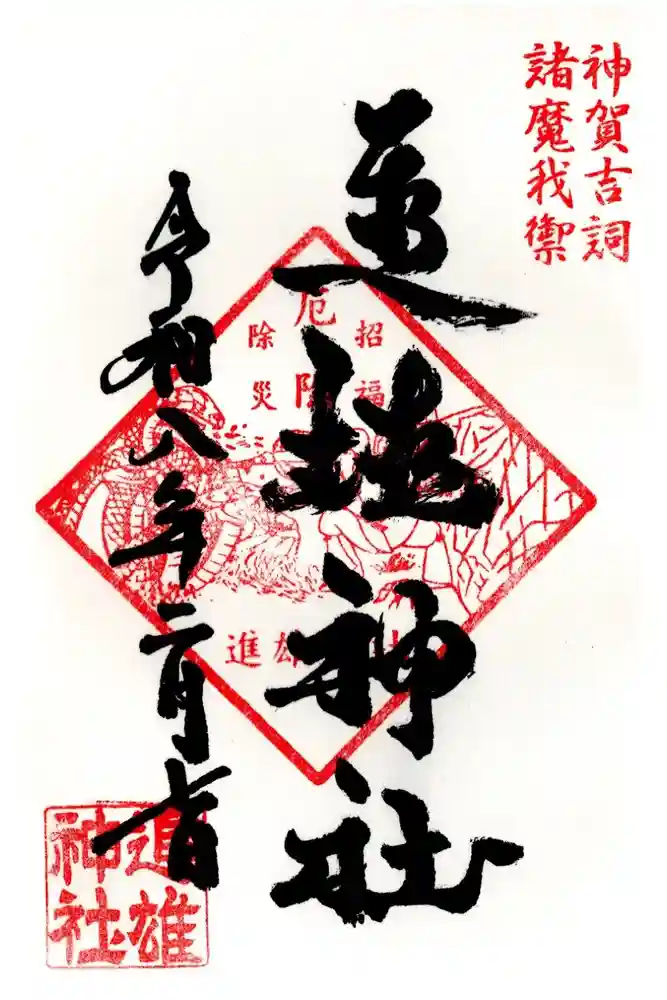 神賀吉詞
諸魔我禦
進雄神社
厄除
招福
除災
進雄
令和八年二月
進雄
神社